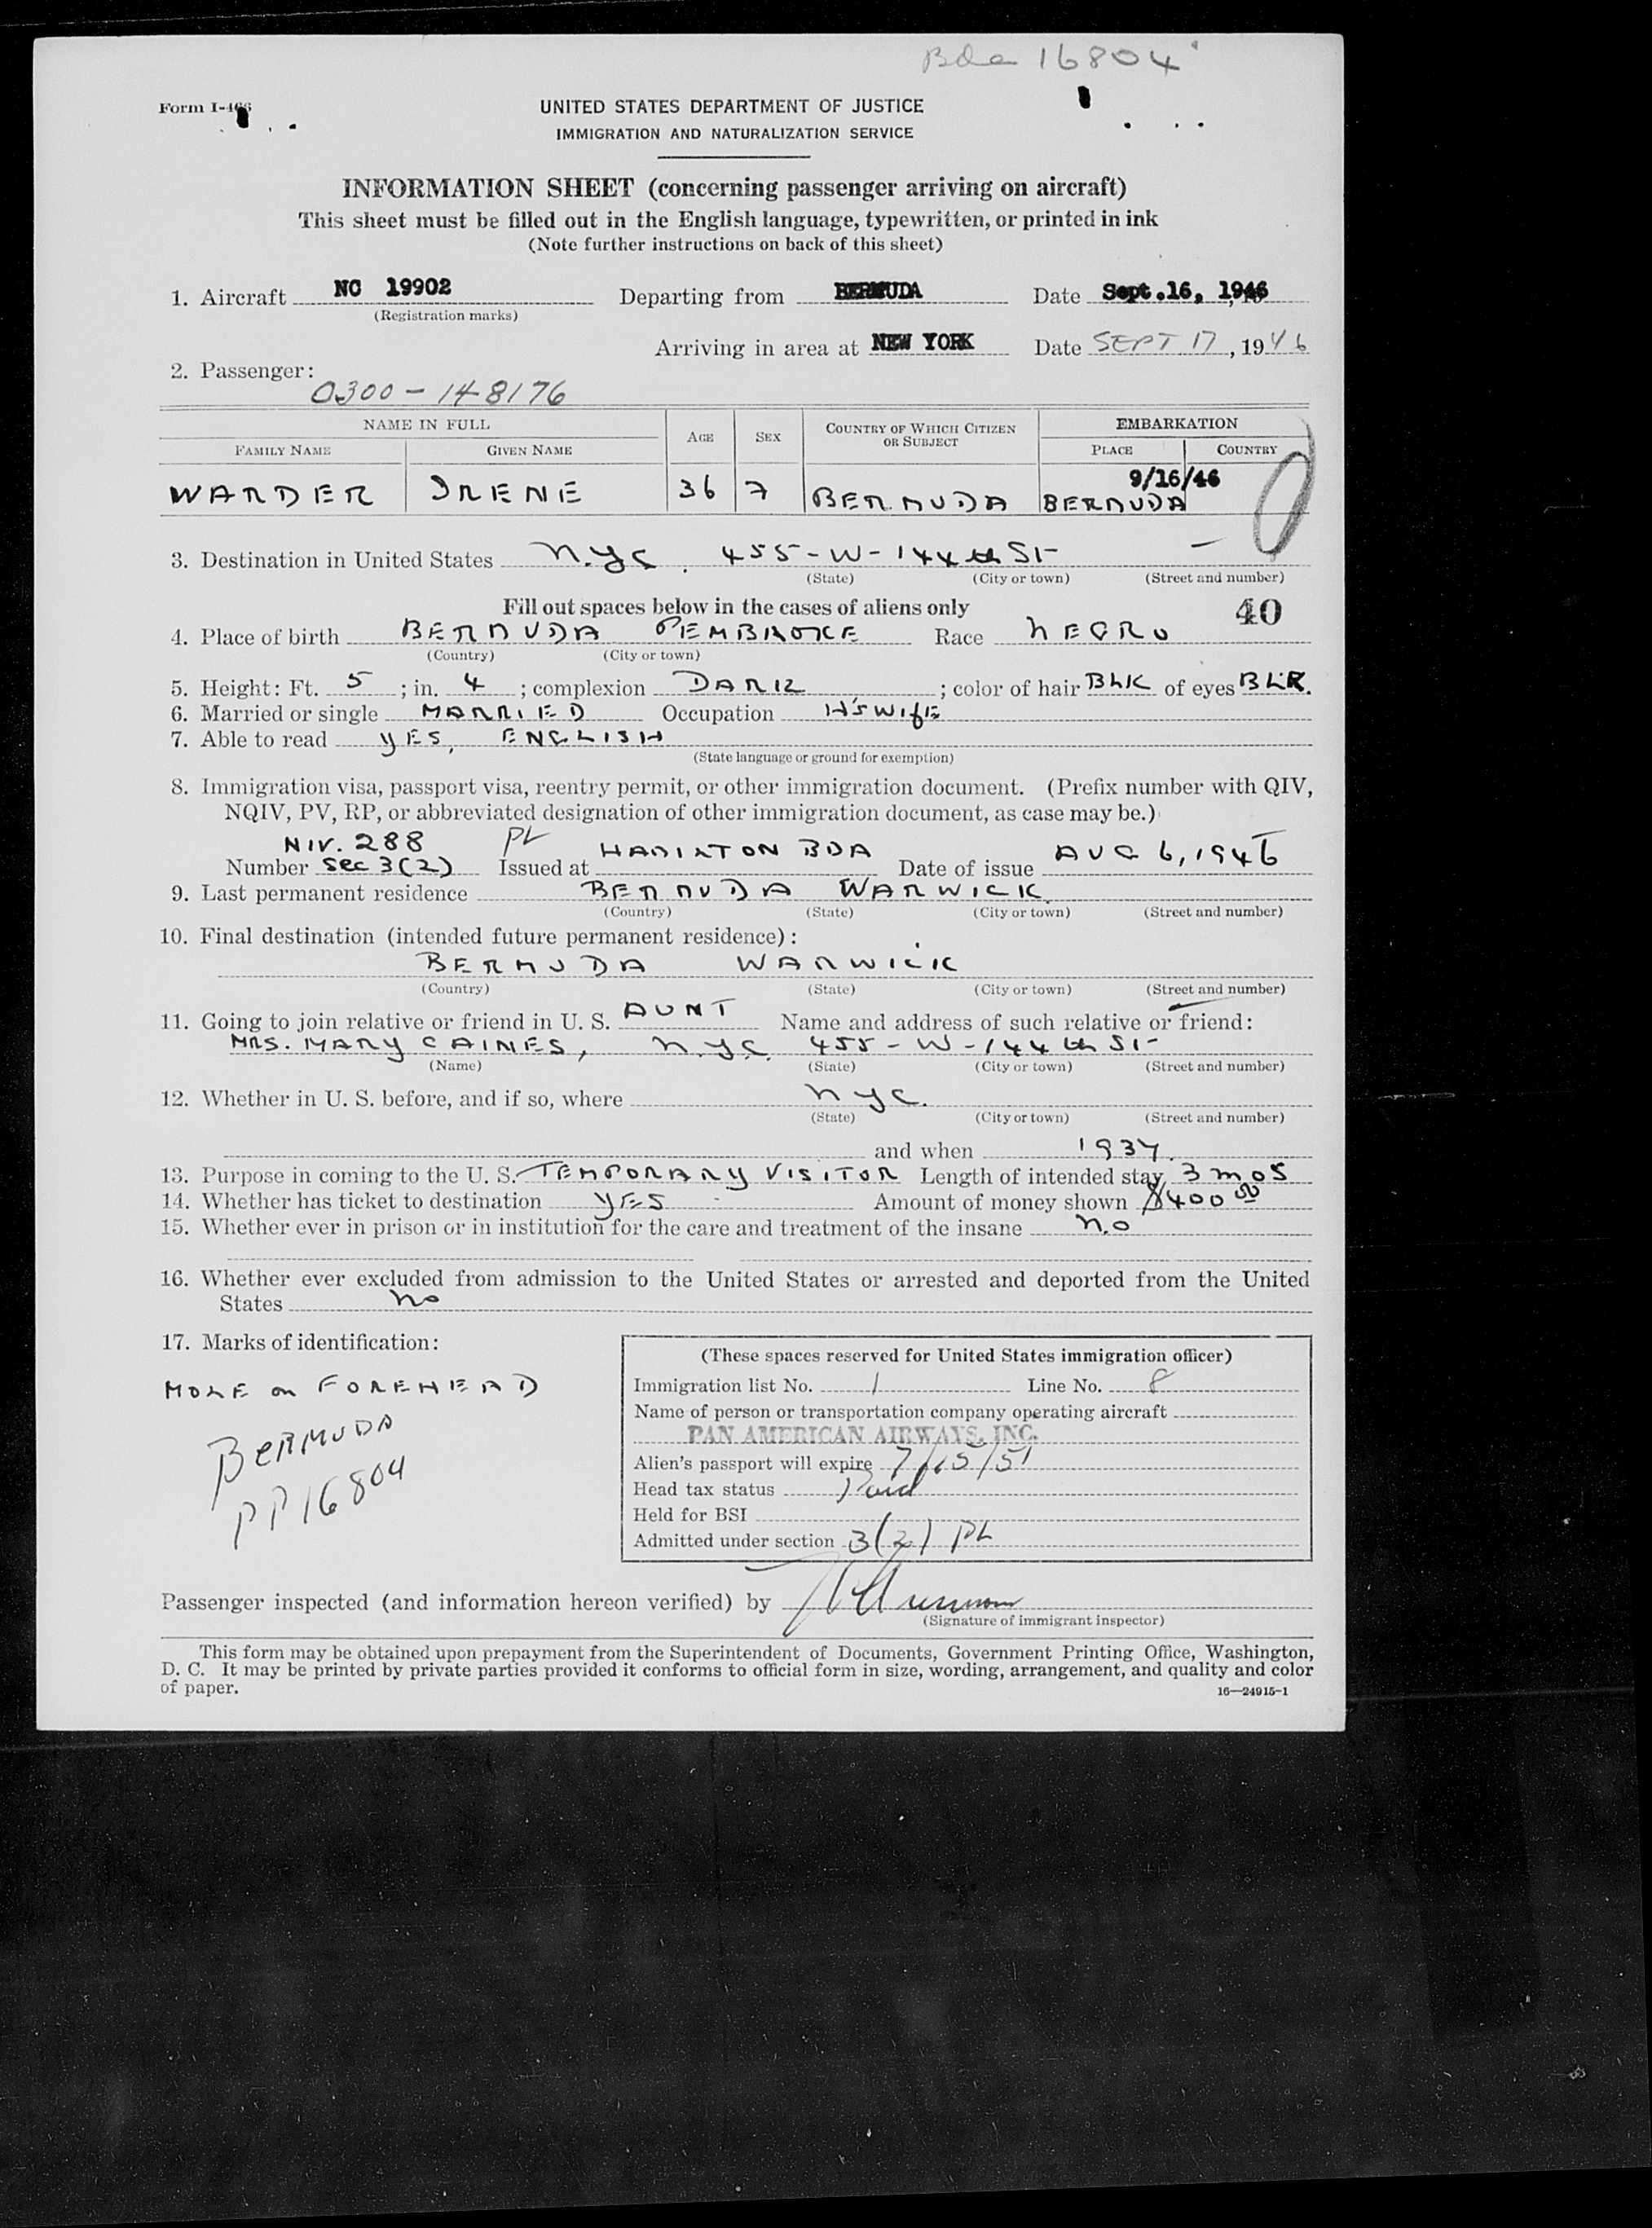 Bda 16804
Form I-466
UNITED STATES DEPARTMENT OF JUSTICE
IMMIGRATION AND NATURALIZATION SERVICE
INFORMATION SHEET (concerning passenger arriving on aircraft)
This sheet must be filled out in the English language, typewritten, or printed in ink
(Note further instructions on back of this sheet)
1. Aircraft NC 19902 Departing from BERMUDA Date Sept.16, 1946
(Registration marks)
Arriving in area at NEW YORK Date SEPT 17, 1946
2. Passenger:
0300-148176
NAME IN FULL AGE SEX COUNTRY OF WHICH CITIZEN OR SUBJECT EMBARKATION
FAMILY NAME GIVEN NAME PLACE COUNTRY
9/16/46
WARDER IRENE 36 F BERMUDA BERMUDA
3. Destination in United States N.Y.C. 455-W-144th St
(State) (City or town) (Street and number)
Fill out spaces below in the cases of aliens only 40
4. Place of birth BERMUDA PEMBROKE Race NEGRO
(Country) (City or town)
5. Height: Ft. 5; in. 4; complexion DARK; color of hair BLK of eyes BLK.
6. Married or single MARRIED Occupation H'SWIFE
7. Able to read YES, ENGLISH
(State language or ground for exemption)
8. Immigration visa, passport visa, reentry permit, or other immigration document. (Prefix number with QIV,
NQIV, PV, RP, or abbreviated designation of other immigration document, as case may be.)
NIV. 288 PL
Number Sec 3(2) Issued at HAMILTON BDA Date of issue AUG 6, 1946
9. Last permanent residence BERMUDA WARWICK
(Country) (State) (City or town) (Street and number)
10. Final destination (intended future permanent residence):
BERMUDA WARWICK
(Country) (State) (City or town) (Street and number)
11. Going to join relative or friend in U. S. AUNT Name and address of such relative or friend:
MRS. MARY CAINES, N.Y.C. 455-W-144th St
(Name) (State) (City or town) (Street and number)
12. Whether in U. S. before, and if so, where NYC.
(State) (City or town) (Street and number)
and when 1937.
13. Purpose in coming to the U. S. TEMPORARY VISITOR Length of intended stay 3 mos
14. Whether has ticket to destination YES Amount of money shown $400 00
15. Whether ever in prison or in institution for the care and treatment of the insane No
16. Whether ever excluded from admission to the United States or arrested and deported from the United
States No
17. Marks of identification:
MOLE on FOREHEAD
BERMUDA
PP16804
(These spaces reserved for United States immigration officer)
Immigration list No. 1 Line No. 8
Name of person or transportation company operating aircraft
PAN AMERICAN AIRWAYS, INC.
Alien's passport will expire 7/15/51
Head tax status Paid
Held for BSI
Admitted under section 3(2) PL
Passenger inspected (and information hereon verified) by
(Signature of immigrant inspector)
This form may be obtained upon prepayment from the Superintendent of Documents, Government Printing Office, Washington,
D. C. It may be printed by private parties provided it conforms to official form in size, wording, arrangement, and quality and color
of paper.
16—24915-1